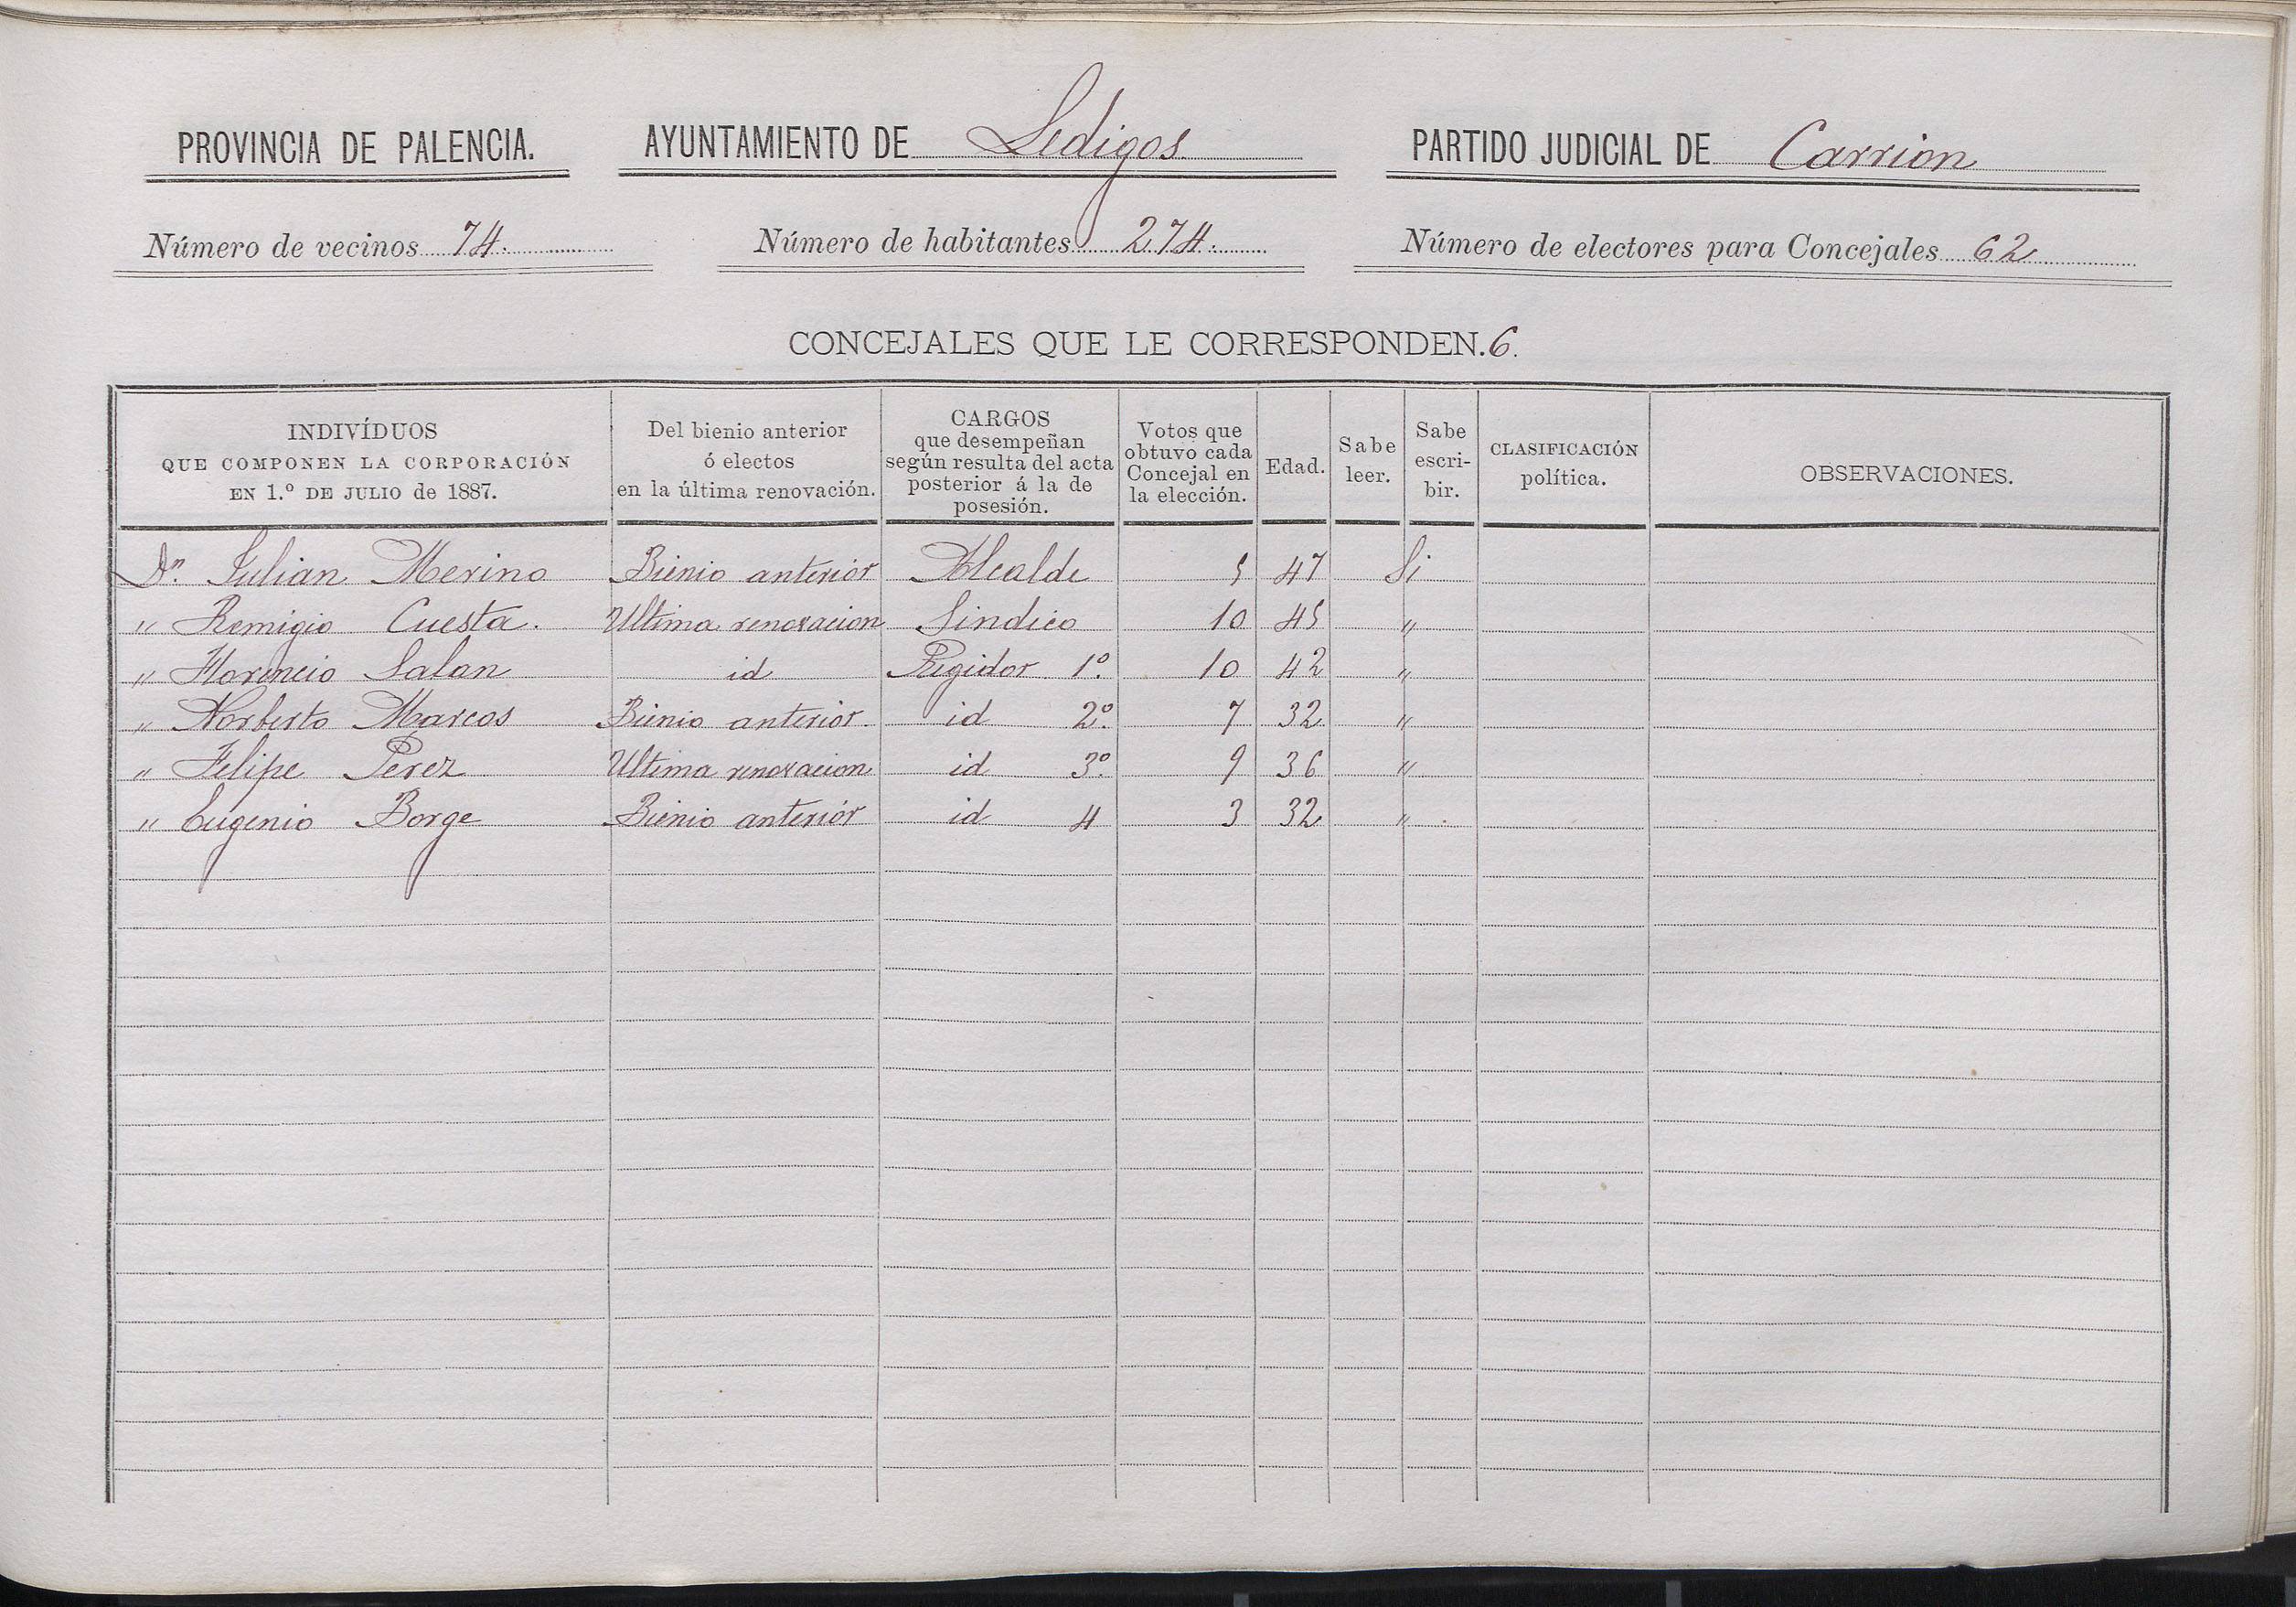 PROVINCIA DE PALENCIA. AYUNTAMIENTO DE Ledigos. PARTIDO JUDICIAL DE Carrion
Número de vecinos 74. Número de habitantes 274. Número de electores para Concejales 62
CONCEJALES QUE LE CORRESPONDEN. 6.
INDIVÍDUOS
QUE COMPONEN LA CORPORACIÓN
EN 1.º DE JULIO de 1887.
Del bienio anterior
ó electos
en la última renovación.
CARGOS
que desempeñan
según resulta del acta
posterior á la de
posesión.
Votos que
obtuvo cada
Concejal en
la elección.
Edad.
Sabe
leer.
Sabe
escri-
bir.
CLASIFICACIÓN
política.
OBSERVACIONES.
Dn. Julian Merino Bienio anterior Alcalde 5 47 Si
" Remigio Cuesta. Ultima renovacion Sindico 10 45 "
" Florencio Salan id Regidor 1º. 10 42 "
" Norberto Marcos Bienio anterior. id 2º. 7 32 "
" Felipe Perez Ultima renovacion id 3º. 9 36 "
" Eugenio Borge Bienio anterior id 4 3 32 "